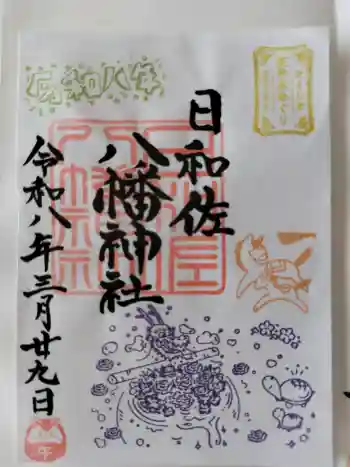 令和八年
日和佐
八幡神社
令和八年三月廿九日
午